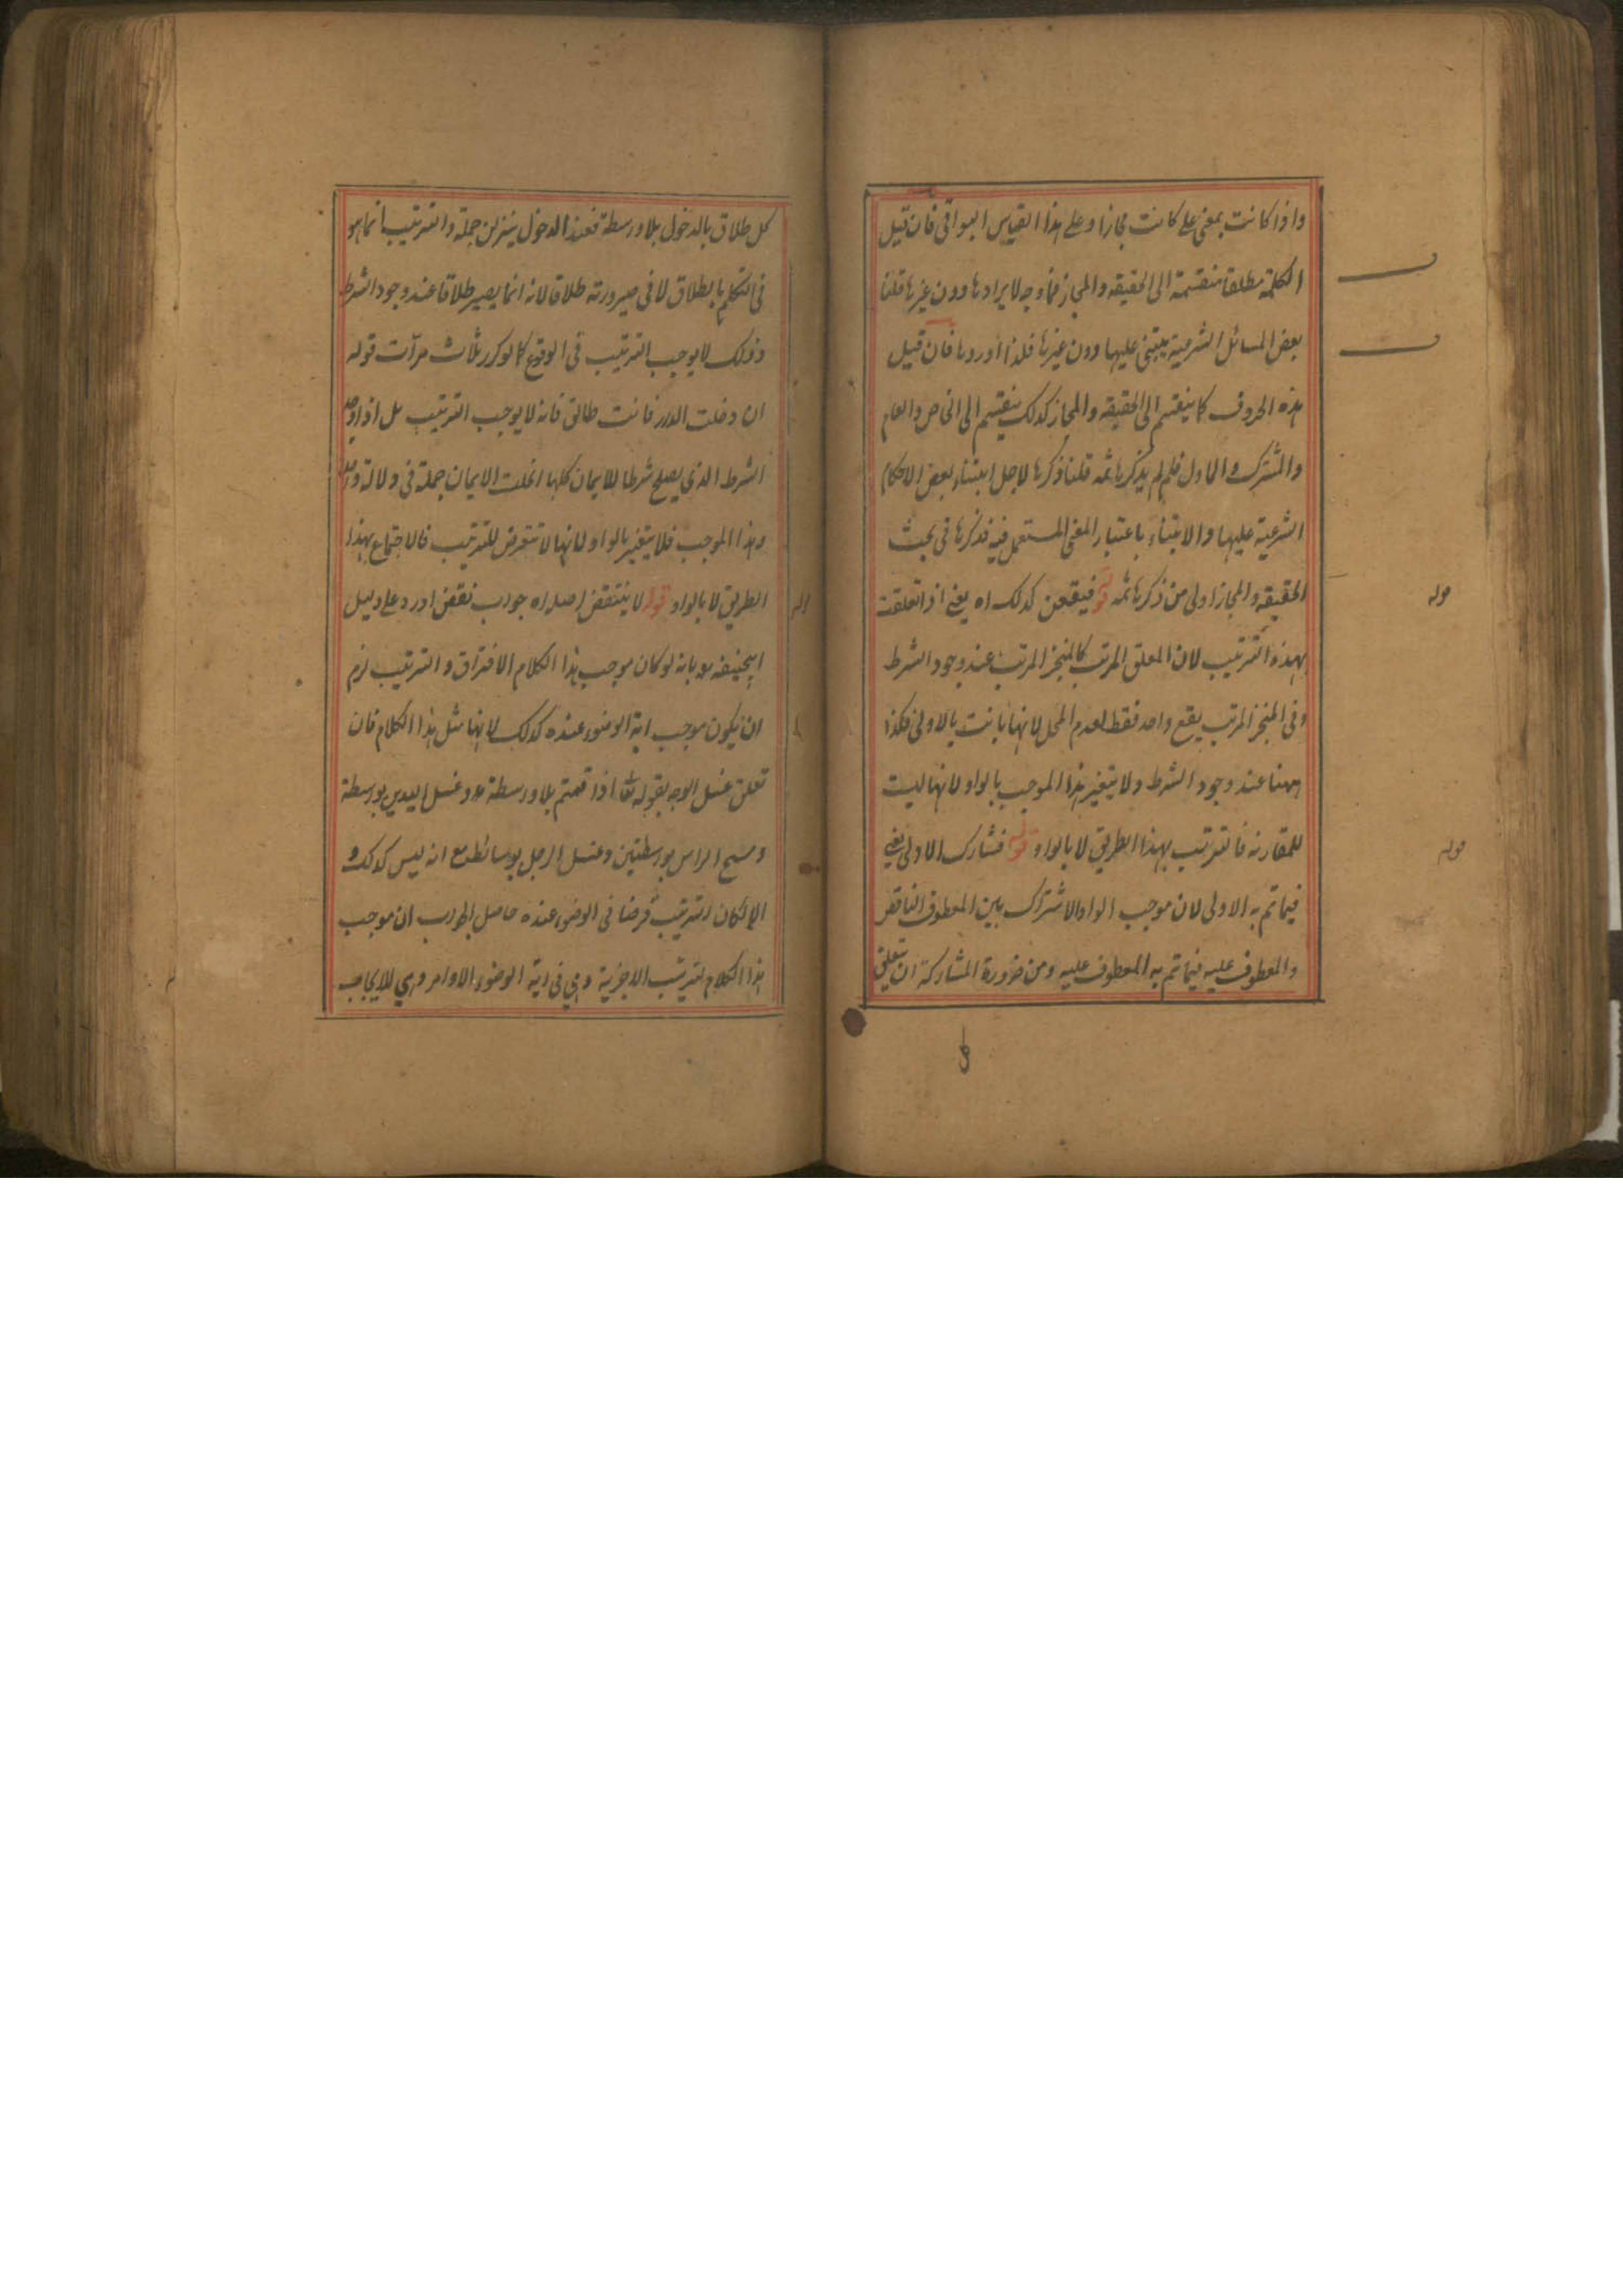 واذا كانت بمعنى على كانت مجازا وعلى هذا القياس البواقى فان قيل
الكلمة مطلقا منقسمة الى الحقيقة والمجاز فما وجه لايرادها دون غيرها قلنا
بعض المسائل الشرعية يبتنى عليها دون غيرها فلذا اوردها فان قيل
هذه الحروف كما ينقسم الى الحقيقه والمجاز كذلك ينقسم الى الخاص والعام
والمشترك والماول فلم لم يذكرها ثمه قلنا ذكرها لاجل ابتناء بعض الاحكام
الشرعية عليها والابتناء باعتبار المعنى المستعمل فيه فذكرها فى بحث
الحقيقه والمجاز اولى من ذكرها ثمه قوله فيقعن كذلك اه يعنى اذا تعلقت
بهذه الترتيب لان المعلق المرتب كالمنجز المرتب عند وجود الشرط
وفى المنجز المرتب يقع واحد فقط لعدم المحل لانها بانت بالاولى فكذا
ههنا عند وجود الشرط ولا يتغير هذا الموجب بالواو لانها ليست
للمقارنه فالترتيب بهذا الطريق لا بالواو قوله فشارك الاولى يعنى
فيما تم به الاولى لان موجب الواو الاشتراك بين المعطوف الناقص
والمعطوف عليه فيما تم به المعطوف عليه ومن ضرورة المشاركة ان يتعلق
كل
كل طلاق بالدخول بلا واسطة فعند الدخول ينزلن جملة والترتيب انما هو
فى التكلم بالطلاق لا فى صيرورته طلاقا لانه انما يصير طلاقا عند وجود الشرط
وذلك لا يوجب الترتيب فى الوقوع كما لو كرر ثلاث مرات قوله
ان دخلت الدار فانت طالق فانه لا يوجب الترتيب بل اذا وجد
الشرط الذى يصلح شرطا للايمان كلها انحلت الايمان جملة فى
وهذا الموجب فلا يتغير بالواو لانها لا تتعرض للترتيب فالاجتماع بهذا
الطريق لا بالواو قوله لا ينتقض اصله اه جواب نقض اورد على دليل
ابيحنيفه بانه لو كان موجب هذا الكلام الافتراق والترتيب لزم
ان يكون موجب اية الوضوء عنده كذلك لانها مثل هذا الكلام فان
تعلق غسل الوجه بقوله تعا اذا قمتم بلا واسطة وغسل اليدين بواسطة
ومسح الراس بواسطتين وغسل الرجل بوسائط مع انه ليس كذلك و
الا لكان الترتيب فرضا فى الوضوء عنده حاصل الجواب ان موجب
هذا الكلام لترتيب الاجزية وهى فى اية الوضوء الاوامر وهى للايجاب